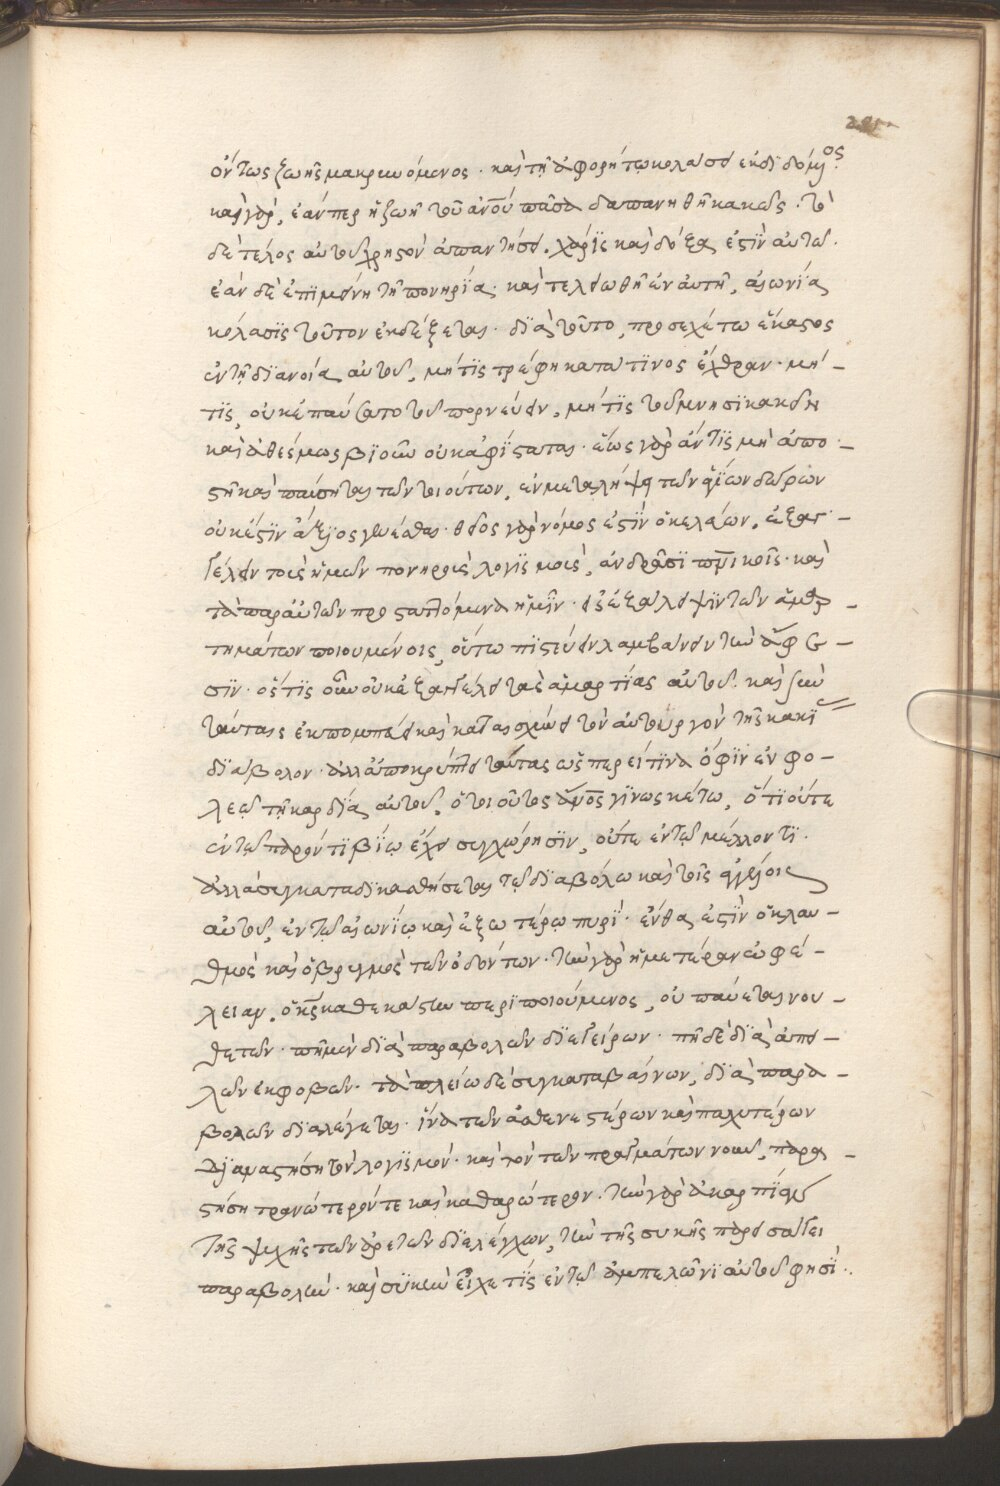 ὄντως ζωῆς μακρυνόμενος · καὶ τῇ ἀφορήτω κολάσει ἐκδιδόμενος.
καὶ γὰρ, ἐάνπερ ἡ ζωὴ τοῦ ἀνου πᾶσα δαπανηθῆ κακῶς · τὸ
δὲ τέλος αὐτοῦ χρηστὸν ἀπαντήσει. χάρις καὶ δόξα ἐστὶν αὐτῶ.
ἐὰν δὲ ἐπιμείνῃ τῇ πονηρία · καὶ τελειωθῆ ἐν αὐτῇ, αἰωνία
κόλασις τοῦτον ἐκδέξεται. διὰ τοῦτο, προσεχέτω ἕκαστος
ἐν τῇ διανοία αὐτοῦ, μήτις τρέφῃ κατά τινος ἔχθραν · μή –
τις, οὐκ ἐπαύσατο τοῦ πορνεύειν, μήτις τοῦ μνησικακεῖν
καὶ ἀθέσμως βιοῦν οὐκ ἀφίσταται. ἕως γὰρ ἄν τις μὴ ἀπο –
στῆ καὶ παύσηται τῶν τοιούτων, ἐν μεταλήψει τῶν ἁγίων δώρων
οὐκ ἔστιν ἄξιος γενέσθαι. θεῖος γὰρ νόμος ἐστὶν ὁ κελεύων, ἐξαγ –
γέλειν τοὺς ἡμῶν πονηροὺς λογισμοὺς, ἀνδράσι πνικοῖς · καὶ
τὰ παρ αὐτῶν προσταττόμενα ἡμῖν · εἰς ἐξάλειψιν τῶν ἁμαρ –
τημάτων ποιουμένοις, οὕτω πιστεύειν λαμβάνειν τὴν ἄφε –
σιν. ὅστις οὖν οὐκ ἐξαγγέλει τὰς ἁμαρτίας αὐτοῦ. καὶ σὺν
ταύταις ἐκπομπεύει καὶ καταισχύνει τὸν αὐτουργὸν τῆς κακί
διάβολον. ἀλλ ἀποκρύπτει ταύτας ὥσπερεί τινα ὄφιν ἐν φο –
λεῶ τῇ καρδία αὐτοῦ, ὅτι οὗτος ἄνος γινωσκέτω, ὅτι οὔτε
ἐν τῷ παρόντι βίῳ ἔχει συγχώρησιν, οὔτε ἐν τῷ μέλλοντι.
ἀλλὰ συγκαταδικασθήσεται τῷ διαβόλω καὶ τοῖς ἀγγέλοις
αὐτοῦ, ἐν τῷ αἰωνίῳ καὶ ἐξωτέρῳ πυρί. ἔνθα ἐστὶν ὁ κλαυ –
θμὸς καὶ ὁ βρυγμὸς τῶν ὀδόντων. τὴν γὰρ ἡμετέραν ὠφέ –
λειαν, ὁ κς καθεκάστην περιποιούμενος, οὐ παύεται νου –
θετῶν · πῆ μὲν διὰ παραβολῶν διεγείρων · πῆ δὲ δι ἀπει –
λῶν ἐκφοβῶν. τὰ πλείω δὲ συγκαταβαίνων, διὰ παρα –
βολῶν διαλέγεται. ἵνα τῶν ἀσθενεστέρων καὶ παχυτέρων
διαναστήσῃ τὸν λογισμόν. καὶ τὸν τῶν πραγμάτων νοῦν, παρα –
στήσῃ τρανώτερόν τε καὶ καθαρώτερον. τὴν γὰρ ἀκαρπίαν
τῆς ψυχῆς τῶν ἀρετῶν διελέγχων, τὴν τῆς συκῆς παρεισάγει
παραβολήν. καὶ συκῆν εἶχέ τις ἐν τῷ ἀμπελῶνι αὐτοῦ φησί.